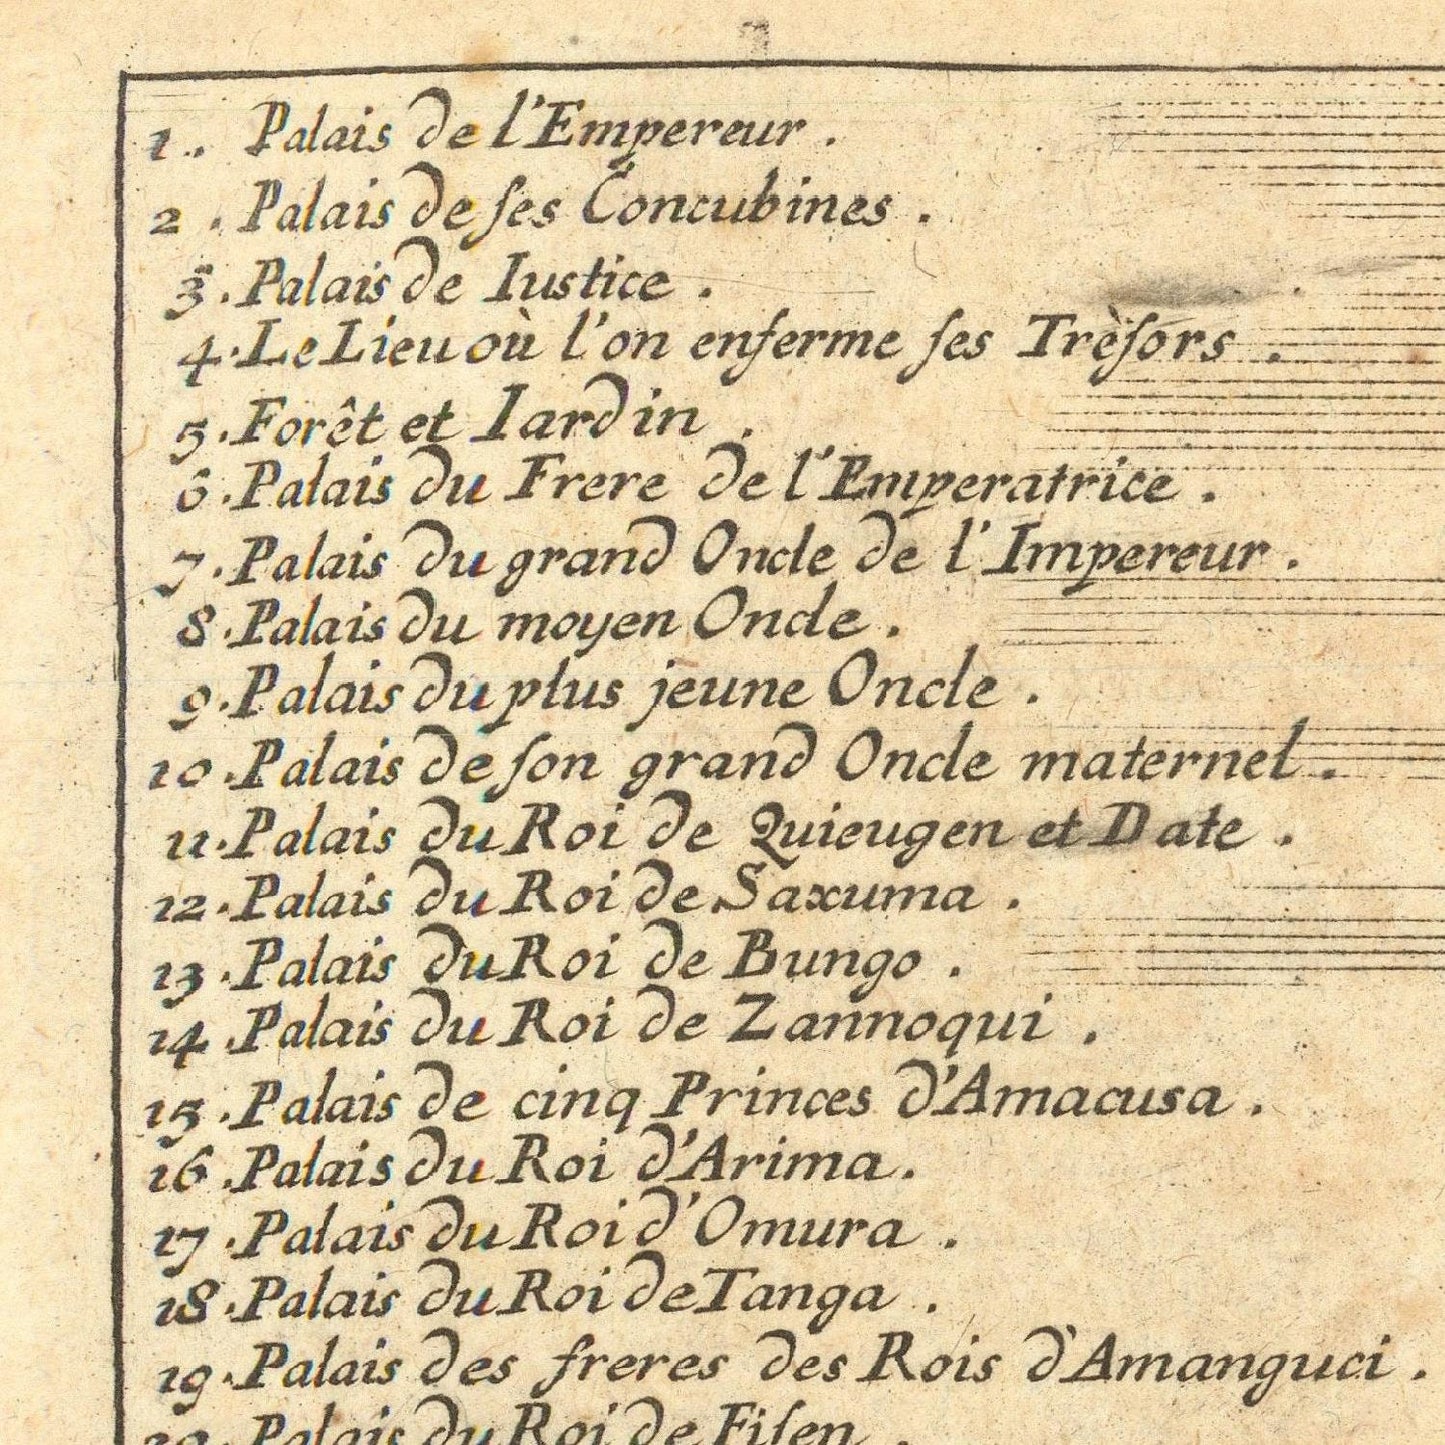 1.. Palais de l'Empereur.
2. Palais de ſes Concubines.
3. Palais de Iustice.
4. Le Lieu où l'on enferme ſes Trèſors.
5. Forêt et Iardin.
6. Palais du Frere de l'Emperatrice.
7. Palais du grand Oncle de l'Impereur.
8. Palais du moyen Oncle.
9. Palais du plus jeune Oncle.
10. Palais de ſon grand Oncle maternel.
11. Palais du Roi de Quieugen et Date.
12. Palais du Roi de Saxuma.
13. Palais du Roi de Bungo.
14. Palais du Roi de Zannoqui.
15. Palais de cinq Princes d'Amacusa.
16. Palais du Roi d'Arima.
17. Palais du Roi d'Omura.
18. Palais du Roi de Tanga.
19. Palais des freres des Rois d'Amanguci.
20. Palais du Roi de Fiſen.